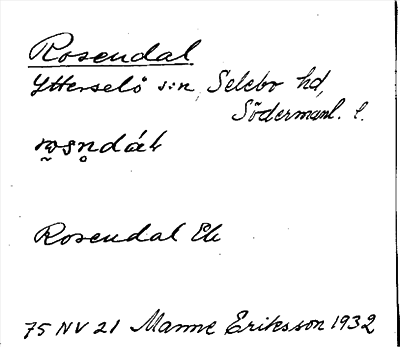 Rosendal
Ytterselö s:n, Selebo hd,
Södermanl. l.
Rosendal Ek
75 NV 21 Manne Eriksson 1932